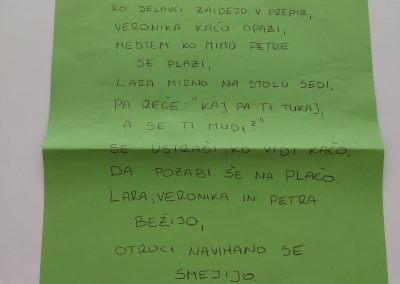 KO DELAVCI ZAIDEJO V PREPIR,
VERONIKA KAČO OPAZI,
MEDTEM KO MIMO PETRE
SE PLAZI,
LARA MIRNO NA STOLU SEDI,
PA REČE: "KAJ PA TI TUKAJ,
A SE TI MUDI?"
SE USTRAŠI, KO VIDI KAČO,
DA POZABI ŠE NA PLAČO.
LARA, VERONIKA IN PETRA
BEŽIJO,
OTROCI NAVIHANO SE
SMEJIJO.